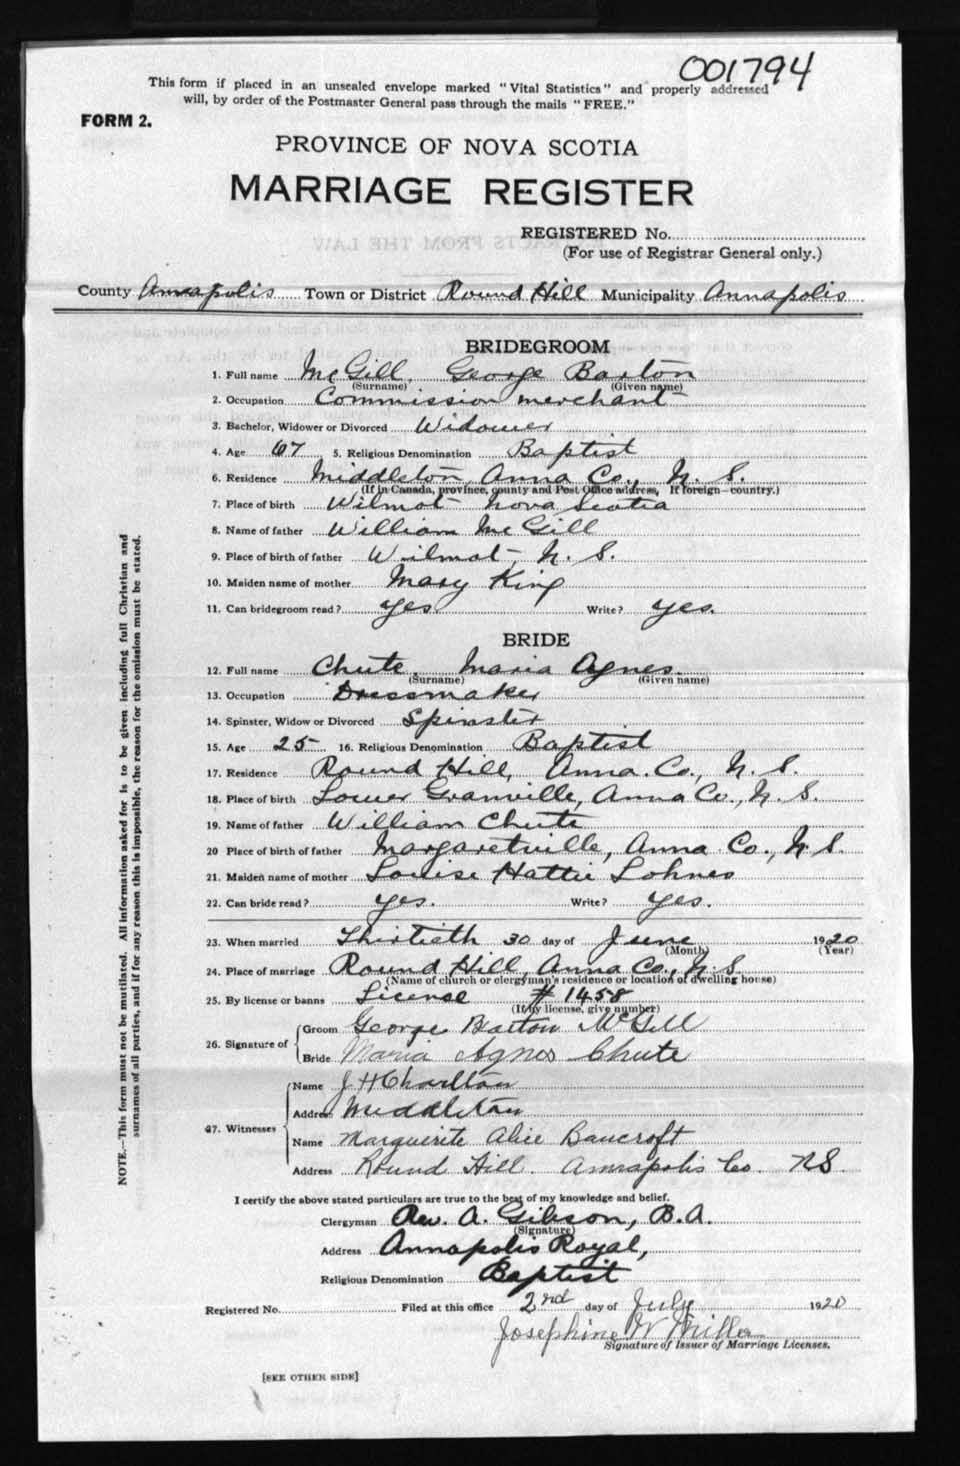 001794
This form if placed in an unsealed envelope marked "Vital Statistics" and properly addressed
will, by order of the Postmaster General pass through the mails "FREE."
FORM 2.
PROVINCE OF NOVA SCOTIA
MARRIAGE REGISTER
REGISTERED No.
(For use of Registrar General only.)
County Annapolis Town or District Round Hill Municipality Annapolis
BRIDEGROOM
1. Full name McGill, George Barton
(Surname) (Given name)
2. Occupation Commission merchant
3. Bachelor, Widower or Divorced Widower
4. Age 67 5. Religious Denomination Baptist
6. Residence Middleton, Anna Co., N. S.
(If in Canada, province, county and Post Office address, If foreign—country.)
7. Place of birth Wilmot Nova Scotia
8. Name of father William McGill
9. Place of birth of father Wilmot, N. S.
10. Maiden name of mother Mary King
11. Can bridegroom read? yes. Write? yes.
BRIDE
12. Full name Chute, Maria Agnes.
(Surname) (Given name)
13. Occupation Dressmaker
14. Spinster, Widow or Divorced Spinster
15. Age 25 16. Religious Denomination Baptist
17. Residence Round Hill, Anna. Co., N. S.
18. Place of birth Lower Granville, Anna Co., N. S.
19. Name of father William Chute
20 Place of birth of father Margaretville, Anna. Co., N. S.
21. Maiden name of mother Louise Hattie Lohnes
22. Can bride read? yes. Write? yes.
23. When married Thirtieth 30 day of June 1920
(Month) (Year)
24. Place of marriage Round Hill, Anna Co., N. S
(Name of church or clergyman's residence or location of dwelling house)
25. By license or banns License # 1458
(If by license, give number)
26. Signature of Groom George Barton McGill
Bride Maria Agnes Chute
27. Witnesses Name J H Charlton
Address Middleton
Name Marguerite Alice Bancroft
Address Round Hill. Annapolis Co. NS.
I certify the above stated particulars are true to the best of my knowledge and belief.
Clergyman Rev. A. Gibson, B. A.
(Signature)
Address Annapolis Royal,
Religious Denomination Baptist
Registered No. Filed at this office 2nd day of July 1920
Josephine W Miller
Signature of Issuer of Marriage Licenses.
[SEE OTHER SIDE]
NOTE.—This form must not be mutilated. All information asked for is to be given including full Christian and
surnames of all parties, and if for any reason this is impossible, the reason for the omission must be stated.